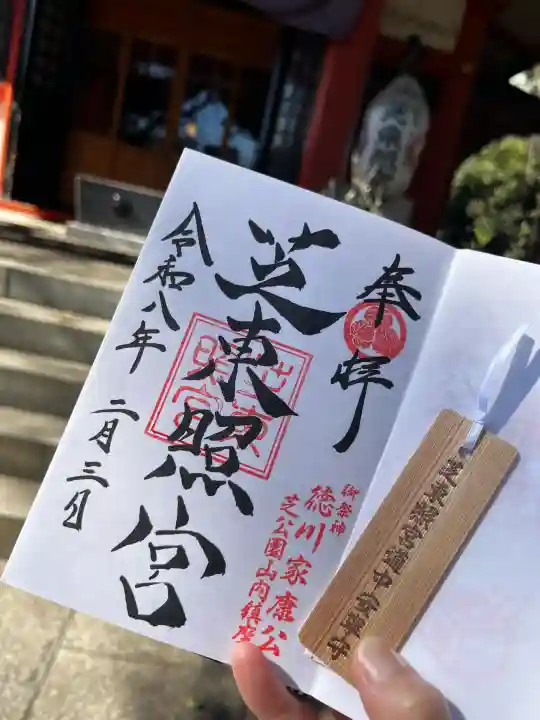 奉拝
芝東照宮
芝東照宮
令和八年
二月三日
御祭神
徳川家康公
芝公園山内鎮座
芝東照宮道中安全守